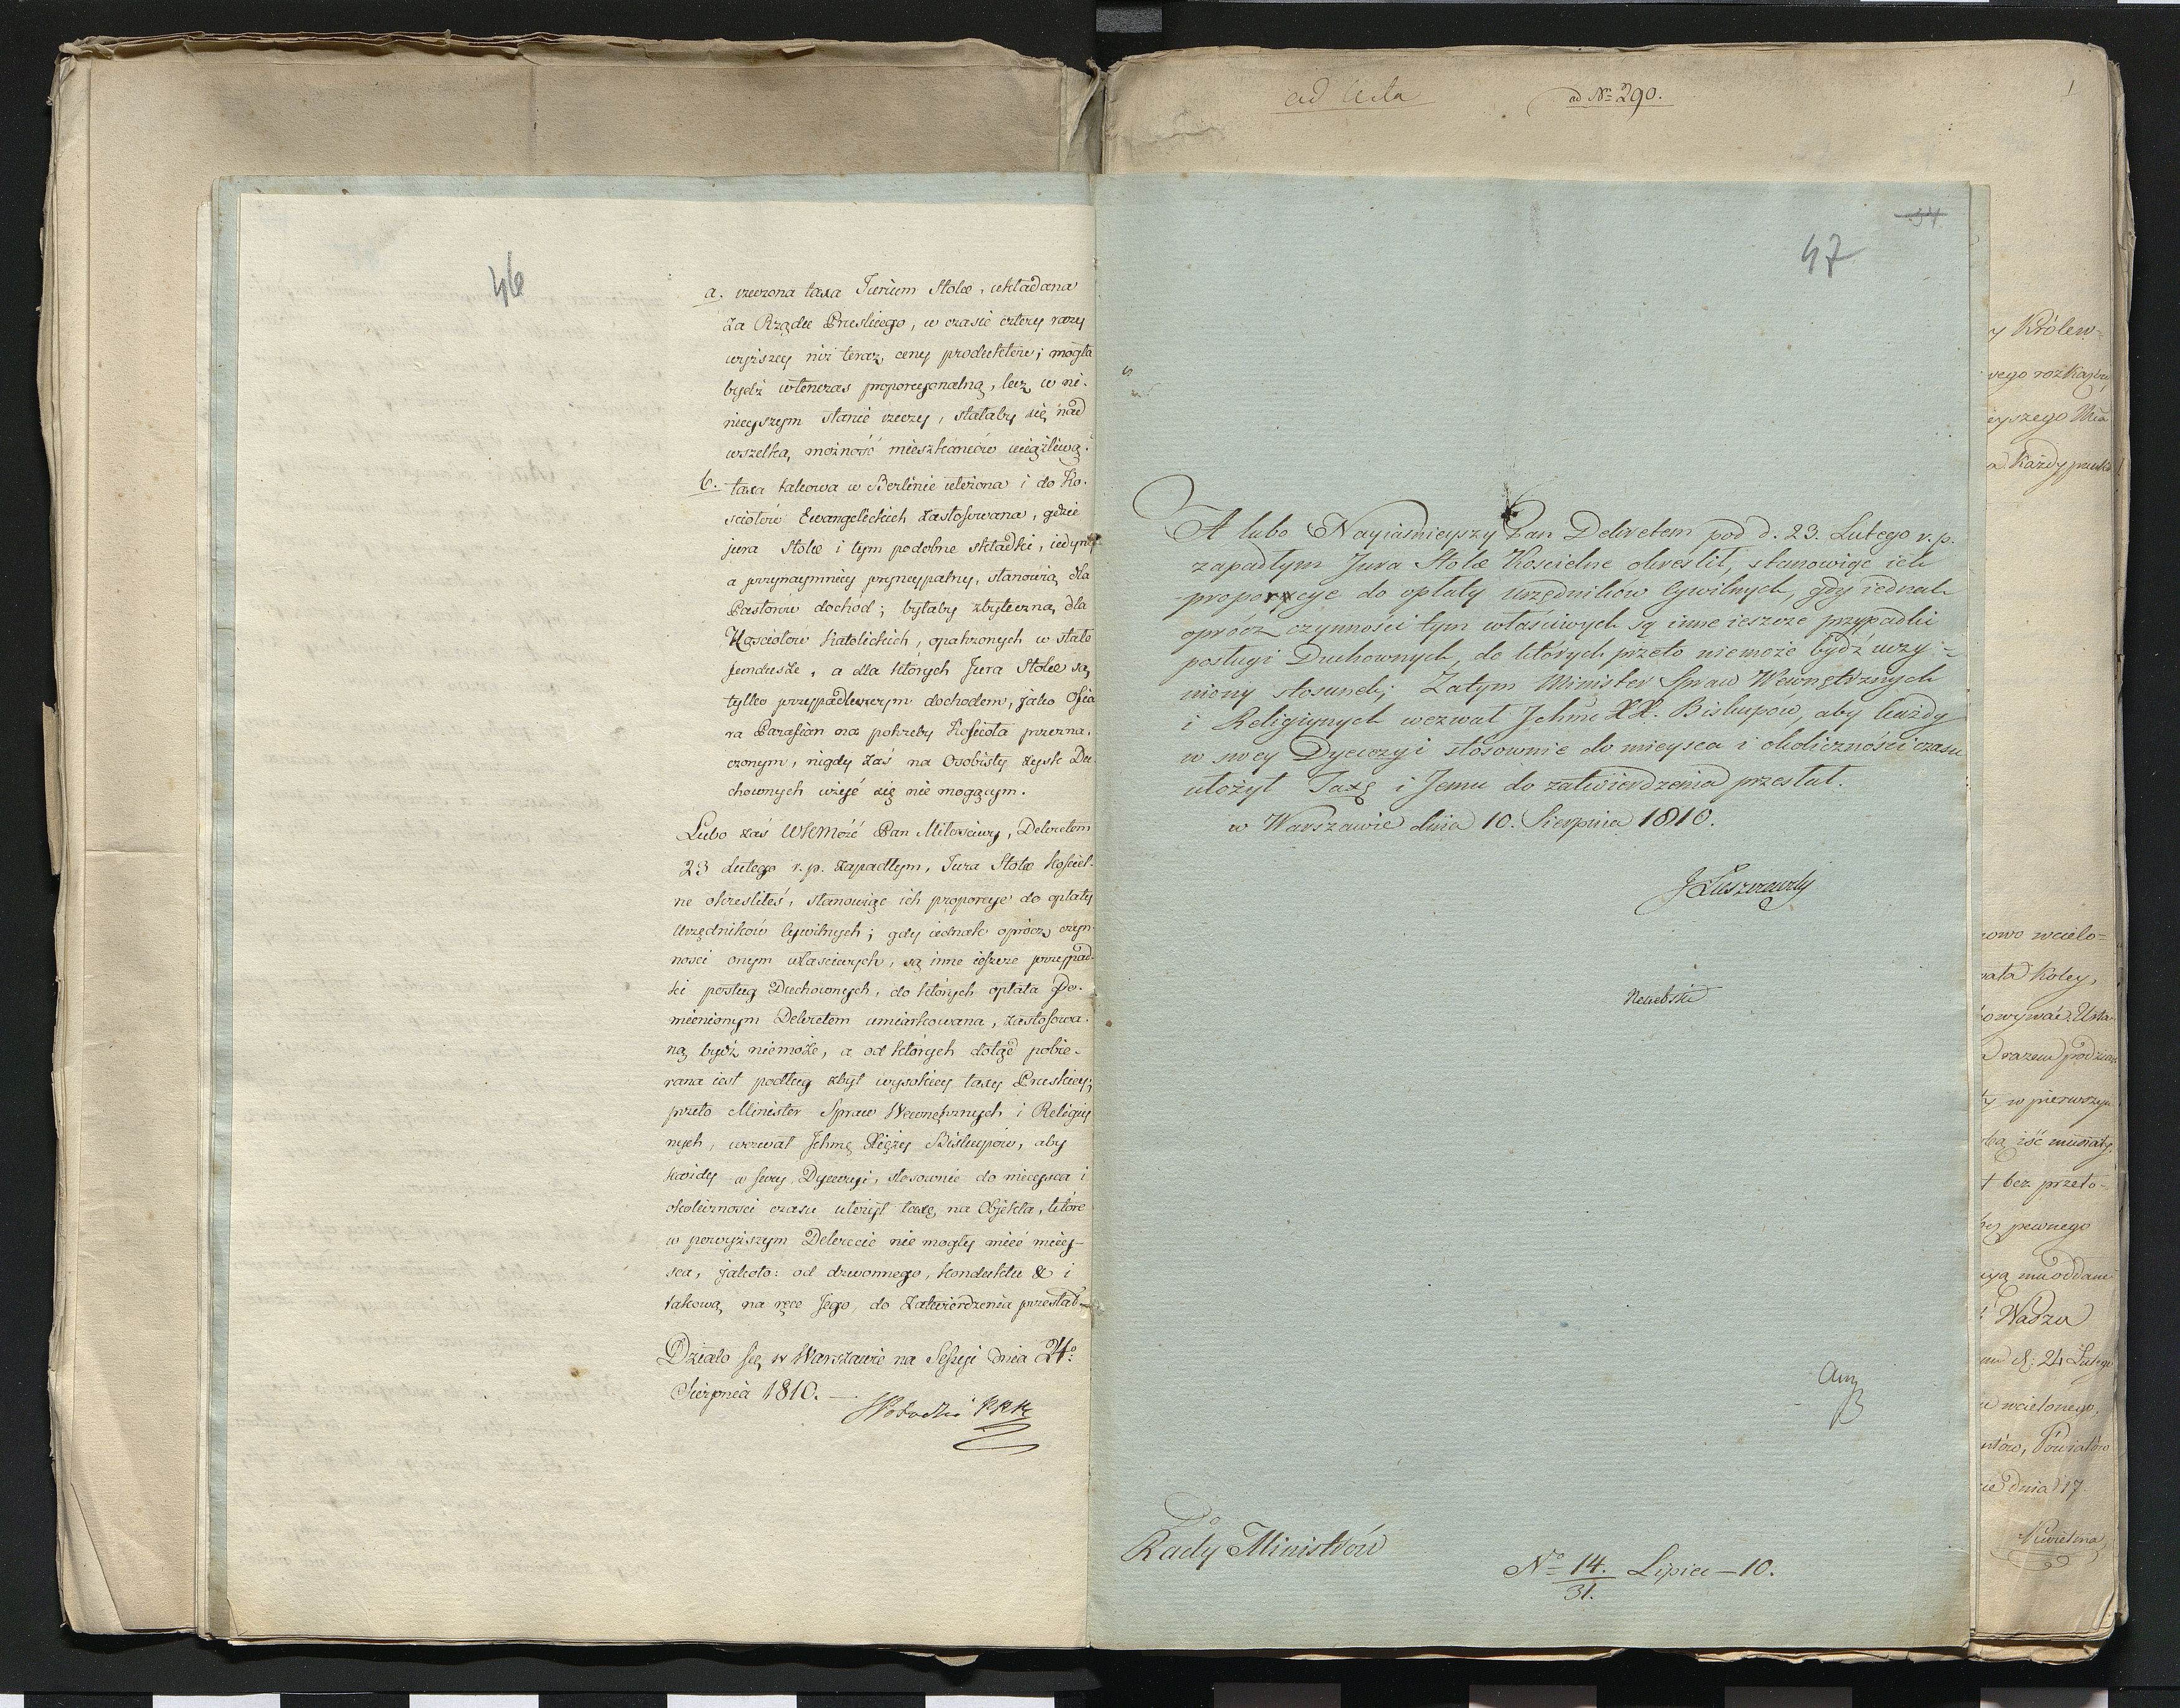 46
a. rzeczona taxa Jurium Stolæ, układana
za Rządu Pruskiego, w czasie cztery razy
wyższey niż teraz, ceny produktów; mogła
bydź wtenczas proporcyonalną, lecz w ni-
nieyszym stanie rzeczy, stałaby się nad
wszelką możność mieszkańców uciążliwą.
b. taxa takowa w Berlinie ułożona i do Ko-
sciołów Ewangelickich zastosowana, gdzie
jura Stolæ i tym podobne składki, iedyny
a przynaymniey pryncypalny, stanowią dla
Pastorów dochód; byłaby zbyteczną dla
Kościołow Katolickich, opatrzonych w stałe
fundusze, a dla których Jura Stolæ są
tylko przypadkowym dochodem, jako Ofia
ra Parafian na potrzeby Kościoła przezna-
czonym, nigdy zaś na Osobisty zysk Du-
chownych użyć się nie mogącym.
Lubo zaś WKMość Pan Miłościwy, Dekretem
23 Lutego r. p. zapadłym, Jura Stolæ Kościel-
ne okresliłeś, stanowiąc ich proporcye do opłaty
Urzędników Cywilnych; gdy iednak oprócz czyn-
ności onym własciwych, są inne ieszcze przypad-
ki posług Duchownych, do których opłata po-
mienionym Dekretem umiarkowana, zastosowa-
ną bydź niemoże, a od których dotąd pobie-
rana iest podług zbyt wysokiey taxy Pruskiey;
przeto Minister Spraw Wewnętrznych i Religiy
nych, wezwał Jchmę Xięży Biskupów, aby
każdy w swey Dyecezyi, stosownie do mieysca i
okoliczności czasu ułożył taxę na Objekta, które
w powyższym Dekrecie nie mogły mieć miey-
sca, jakoto: od dzwonnego, konduktu & i
takową na ręce Jego, do zatwierdzenia przesłał
Działo się w Warszawie na Sessyi dnia 24º
Sierpnia 1810. —
ad Acta
ad No 290.
1
34
47
A lubo Nayiaśnieyszy Pan Dekretem pod d. 23. Lutego r. p.
zapadłym Jura Stolæ Kościelne okreslił, stanowiąc ich
proporcye do opłaty urzędników Cywilnych, gdy iednak
oprócz czynności tym właściwych są inne ieszcze przypadki
posługi Duchownych, do których przeto niemoże bydź uczy-
niony stosunek; Zatym Minister Spraw Wewnętrznych
i Religiynych wezwał Jchmć XX. Biskupów, aby każdy
w swey Dyecezyi stosownie do mieysca i okoliczności czasu
ułożył Taxę i Jemu do zatwierdzenia przesłał.
w Warszawie dnia 10. Sierpnia 1810.
J Łuszczewsky
Do
Rady Ministrów
No 14./31. Lipca — 10.
y Królew=
eyszego
a Każdy
nowo wcielo=
Koley,
razem
w pierwszym
iść
t bez przeło-
pewnego
Wasza
24 Lutego
wcielonego,
Powiatów
dnia 17